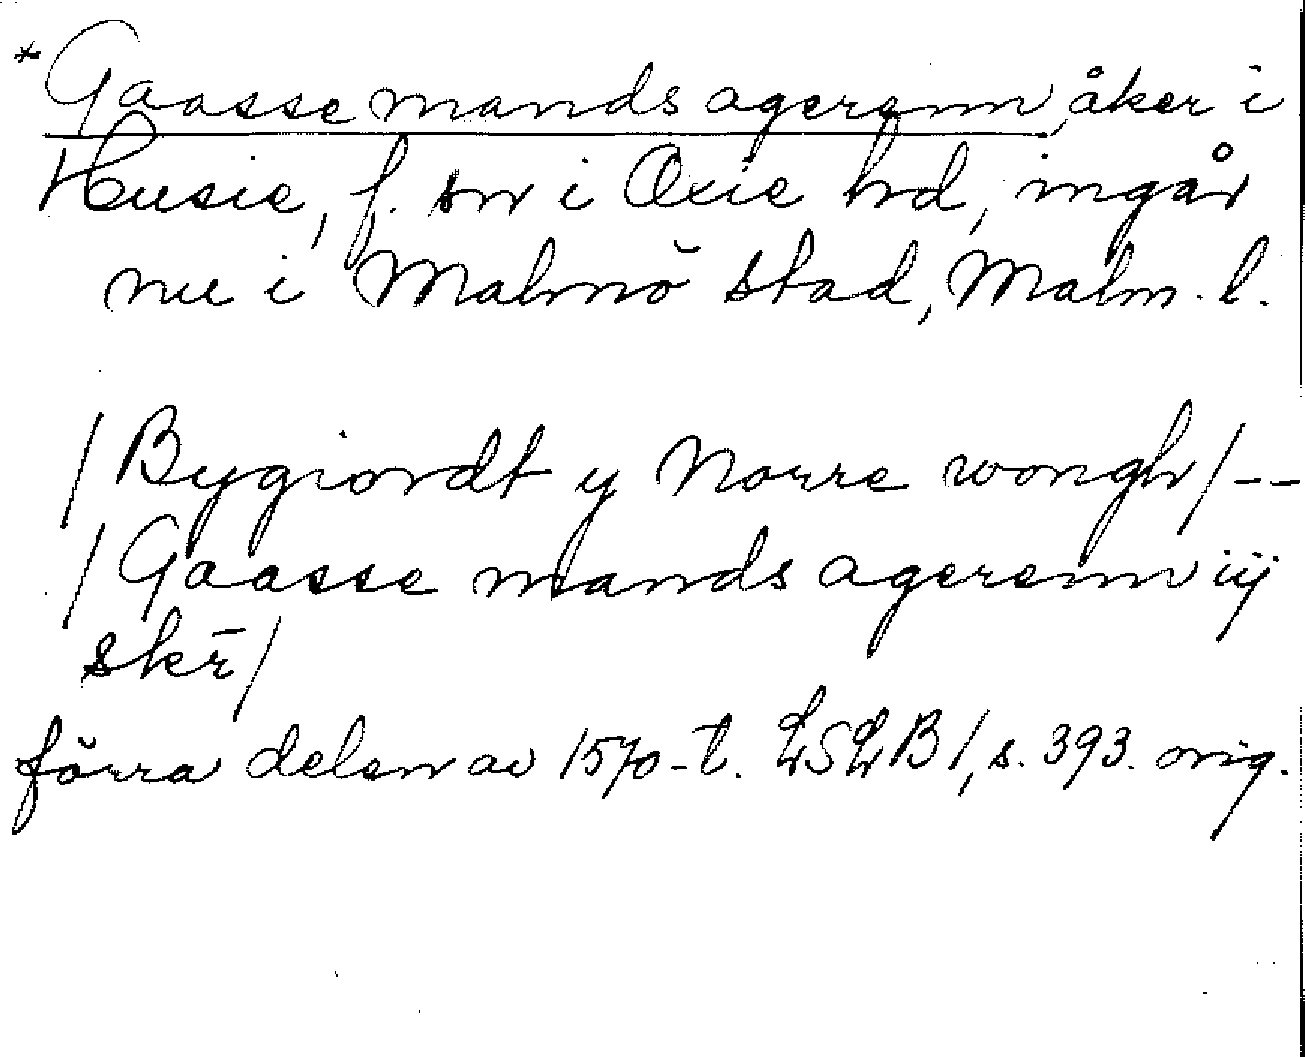 *Gaasse mands agerenn, åker i
Husie, f. sn i Oxie hd, ingår
nu i Malmö stad, Malm. l.
/Bygiordt y Norre wongh/--
/Gaasse mands agerenn iij
skr̄/
förra delen av 1570-t. LSLB 1, s. 393. orig.